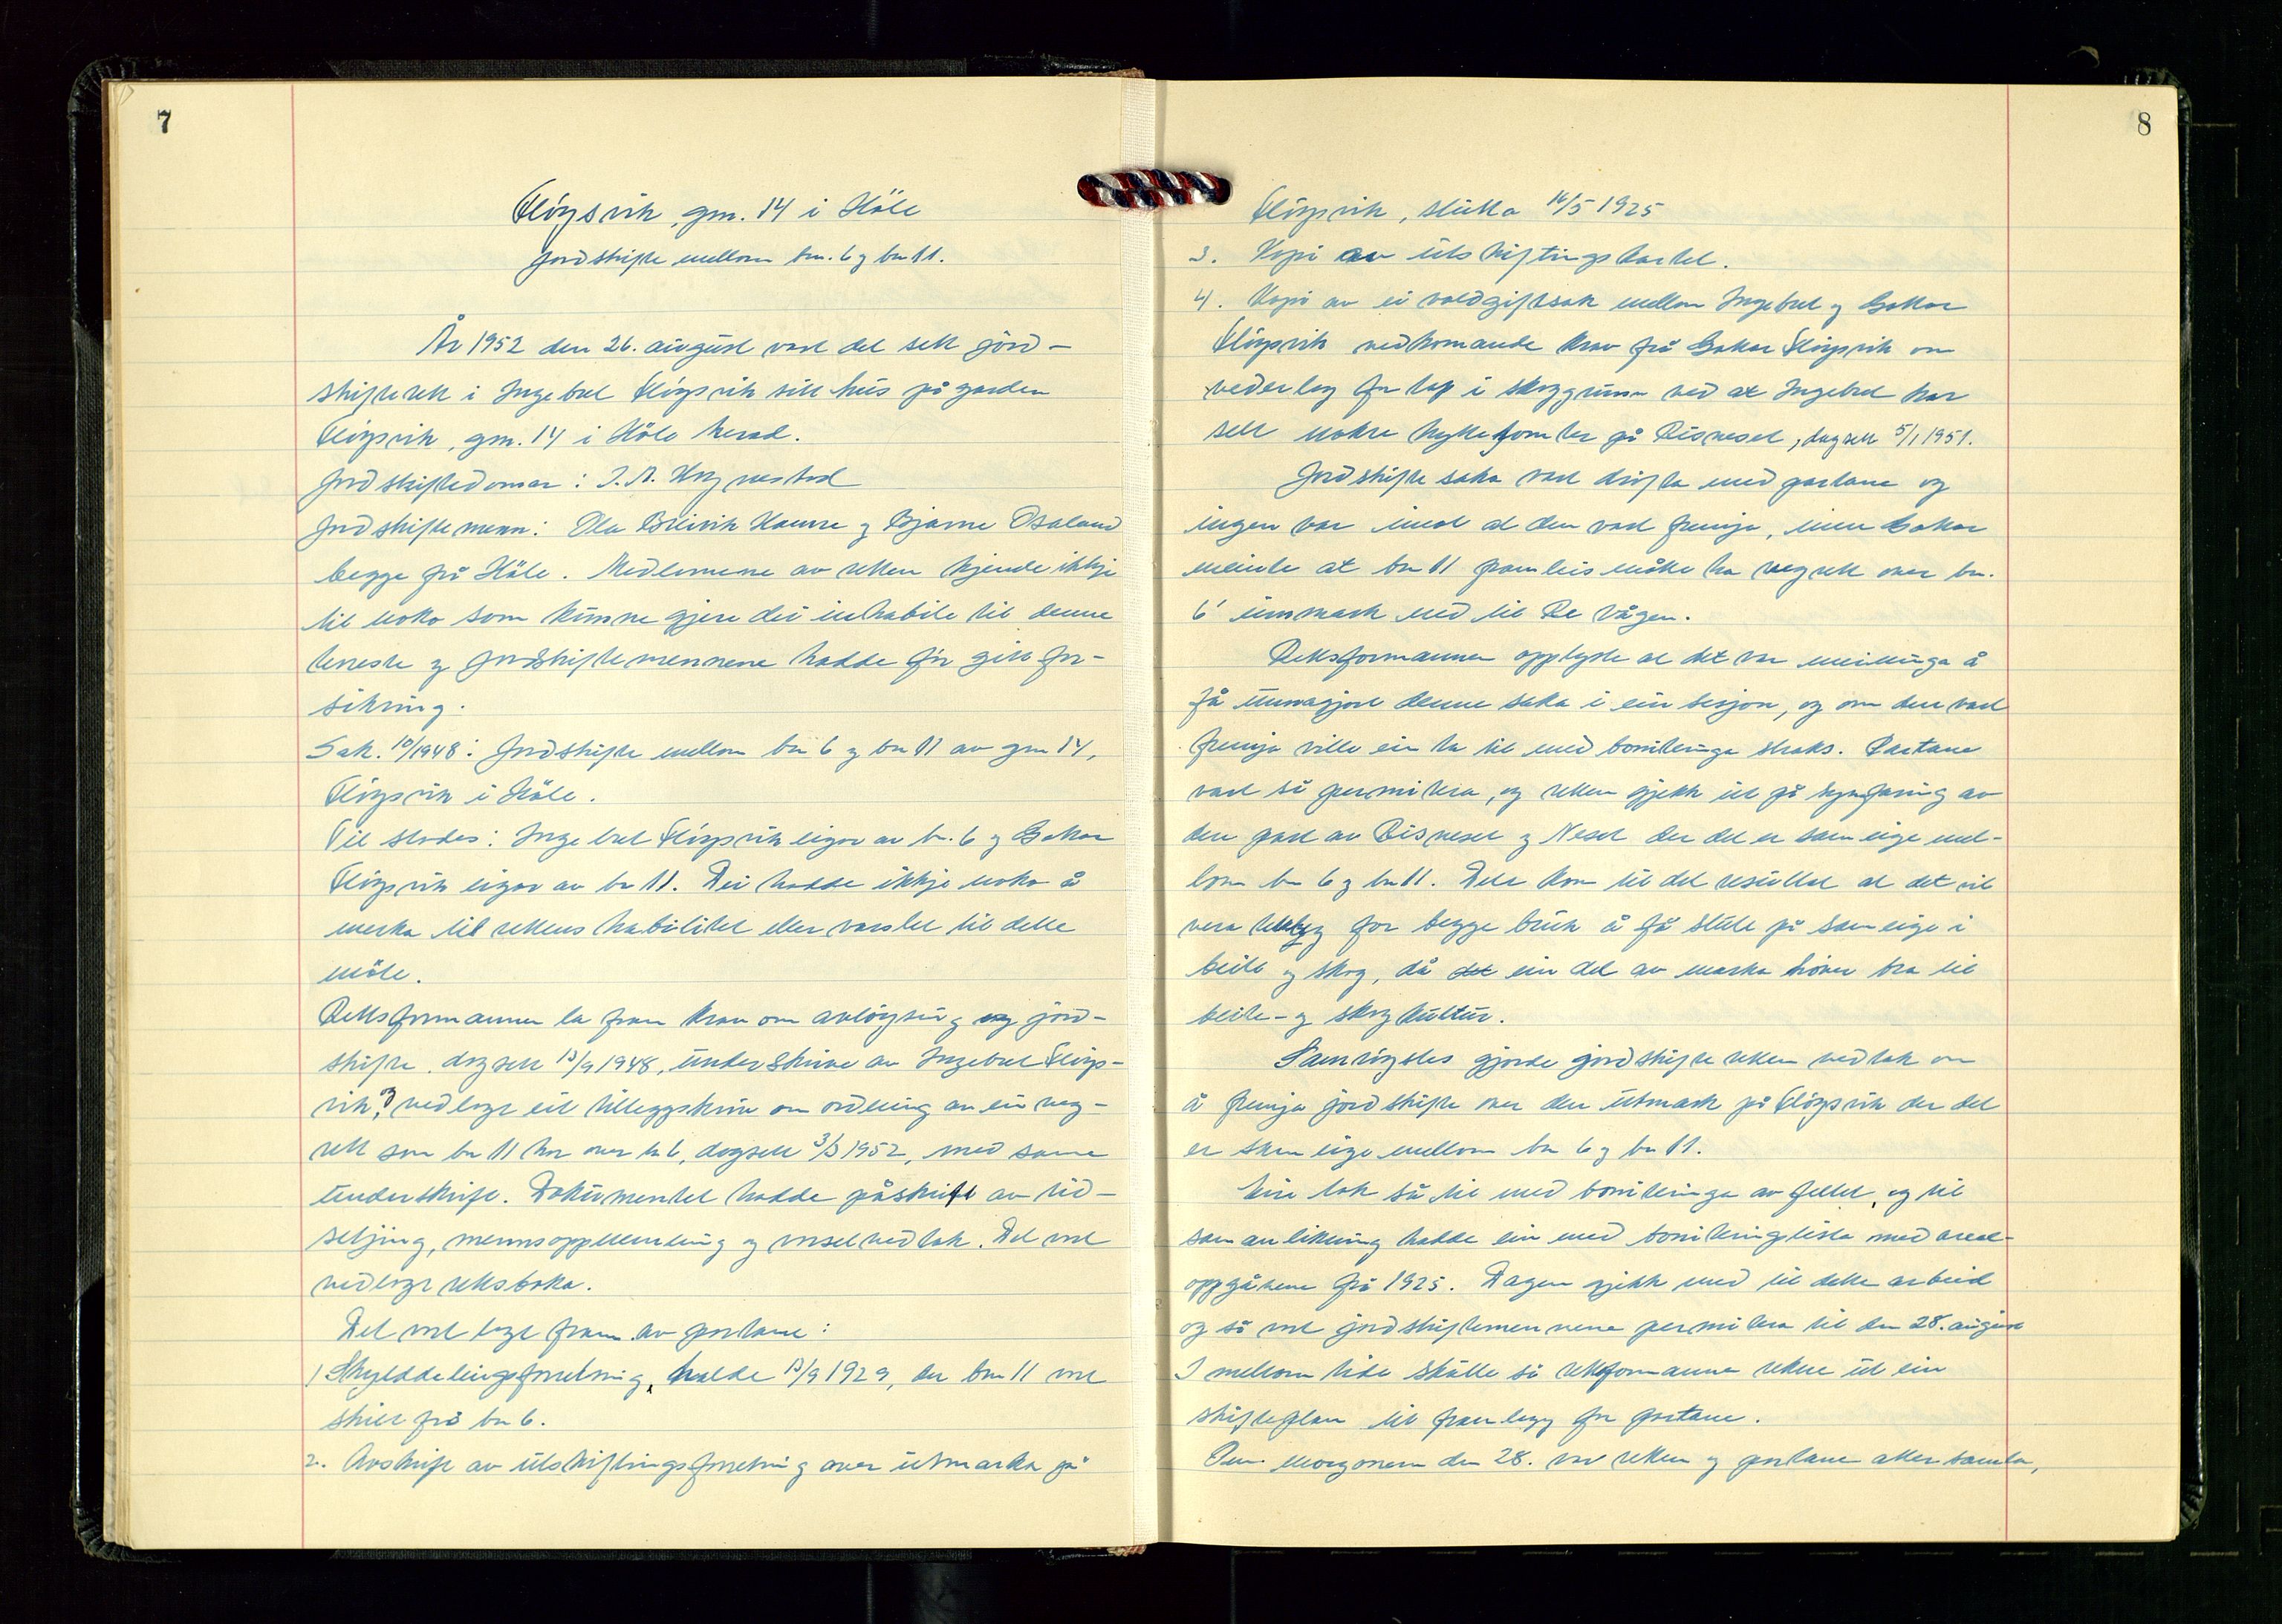 7
Fløysvik, gnr. 14 i Høle
Jordskifte mellom bn. 6 og bn 11.
År 1952 den 26. august vart det sett jord-
skifterett i Ingebret Fløysvik sitt hus på garden
Fløysvik, gnr. 14 i Høle herad.
Jordskiftedomar: T. A. Hognestad
Jordskiftemenn: Ola Breivik Haures og Bjarne Osaland
begge frå Høle. Medlemene av retten kjende ikkje
til noko som kunne gjere dei inhabile til denne
teneste og jordskiftemennene hadde før gitt for-
sikring.
Sak. 10/1948: Jordskifte mellom bn 6 og bn 11 av gnr 14,
Fløysvik i Høle.
Til stades: Ingebret Fløysvik eigar av bn. 6 og Gabar
Fløysvik eigar av bn 11. Dei hadde ikkje noko å
merka til rettens habilitet eller varslet til dette
møte.
Rettsformannen la fram krav om avløysing og jord-
skifte, dagsett 13/9 1948, underskrive av Ingebret Fløys-
vik, vedlagt eit tilleggskriv om ordning av ein veg-
rett som bn 11 har over bn 6, dagsett 3/3 1952, med same
underskrift. Dokumentet hadde påskrift av tid-
setjing, mennsoppnemning og varselvedtak. Det vart
vedlagt rettsboka.
Det vart lagt fram av partane:
1 Skylddelingsforretning, halde 13/9 1929, der bn 11 vart
skilt frå bn 6.
2. Avskrift av utskiftingsforretning over utmarka på
8
Fløysvik, slutta 16/5 1925
3. Kopi av utskiftingskartet.
4. Kopi av ei voldgiftsak mellom Ingebret og Gabar
Fløysvik vedkomande krav frå Gabar Fløysvik om
vederlag for tap i skoggrunn ved at Ingebret har
selt nokre hyttetomter på Risneset, dagsett 5/1 1951.
Jordskiftesaka vart drøfta med partane og
ingen var imot at den vart fremja, men Gabar
meinte at bn 11 framleis måtte ha vegrett over bn.
6' innmark ned til Re vågen.
Rettsformannen opplyste at det var meininga å
få unnagjort denne saka i ein sesjon, og om den vart
fremja ville ein ta til med boniteringa straks. Partane
vart så permitera, og retten gjekk ut på synfaring av
den part av Risneset og Neset der det er sameige mel-
lom bn 6 og bn 11. Dette kom til det resultat at det vil
vera tenleg for begge bruk å få slutt på sameige i
beite og skog, då ein del av marka høver bra til
beite- og skogkultur.
Samrøystes gjorde jordskifteretten vedtak om
å fremja jordskifte over den utmark på Fløysvik der det
er sameige mellom bn 6 og bn 11.
Ein tok så til med boniteringa av feltet, og til
samanlikning hadde ein med boniteringslista med areal-
oppgåvene frå 1925. Dagen gjekk med til dette arbeid
og så vart jordskiftemennene permitera til den 28. august
I mellom tida skulle så rettsformannen rekne ut ein
skifteplan til framlegg for partane.
Om morgonen den 28. var retten og partane atter samla,